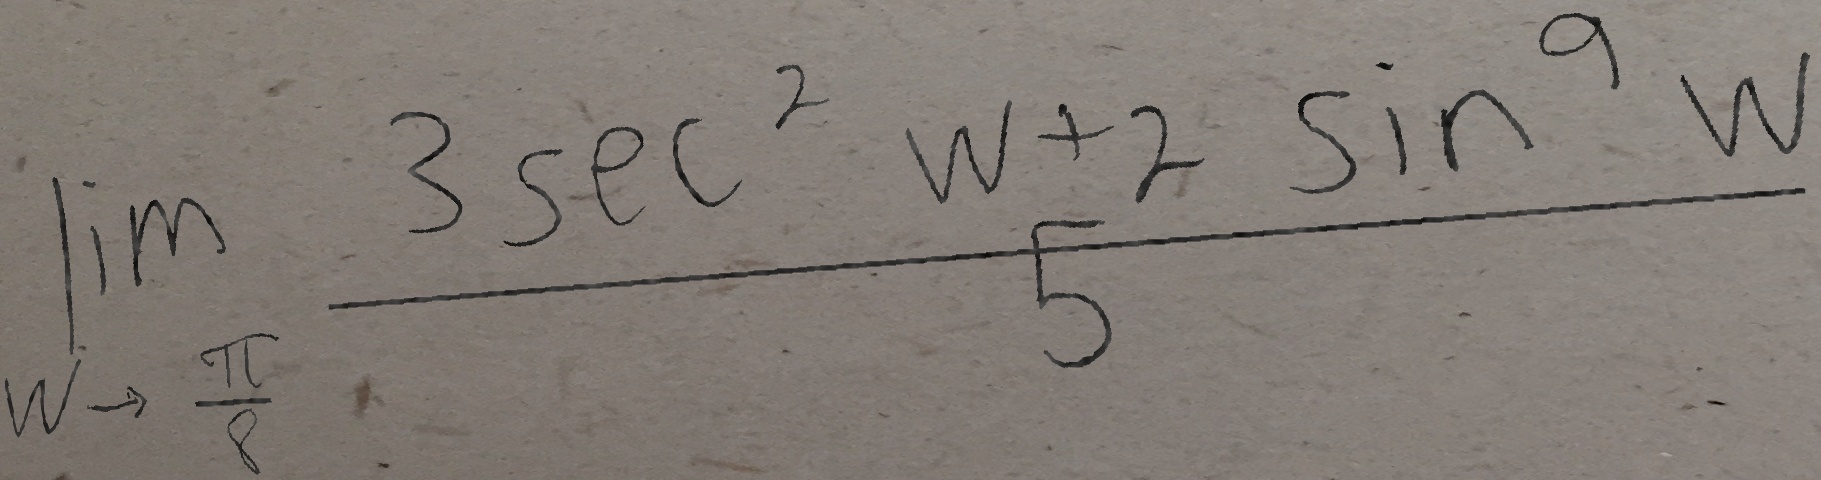 lim w→π/8 (3 sec² w+2 sin⁹ w)/5